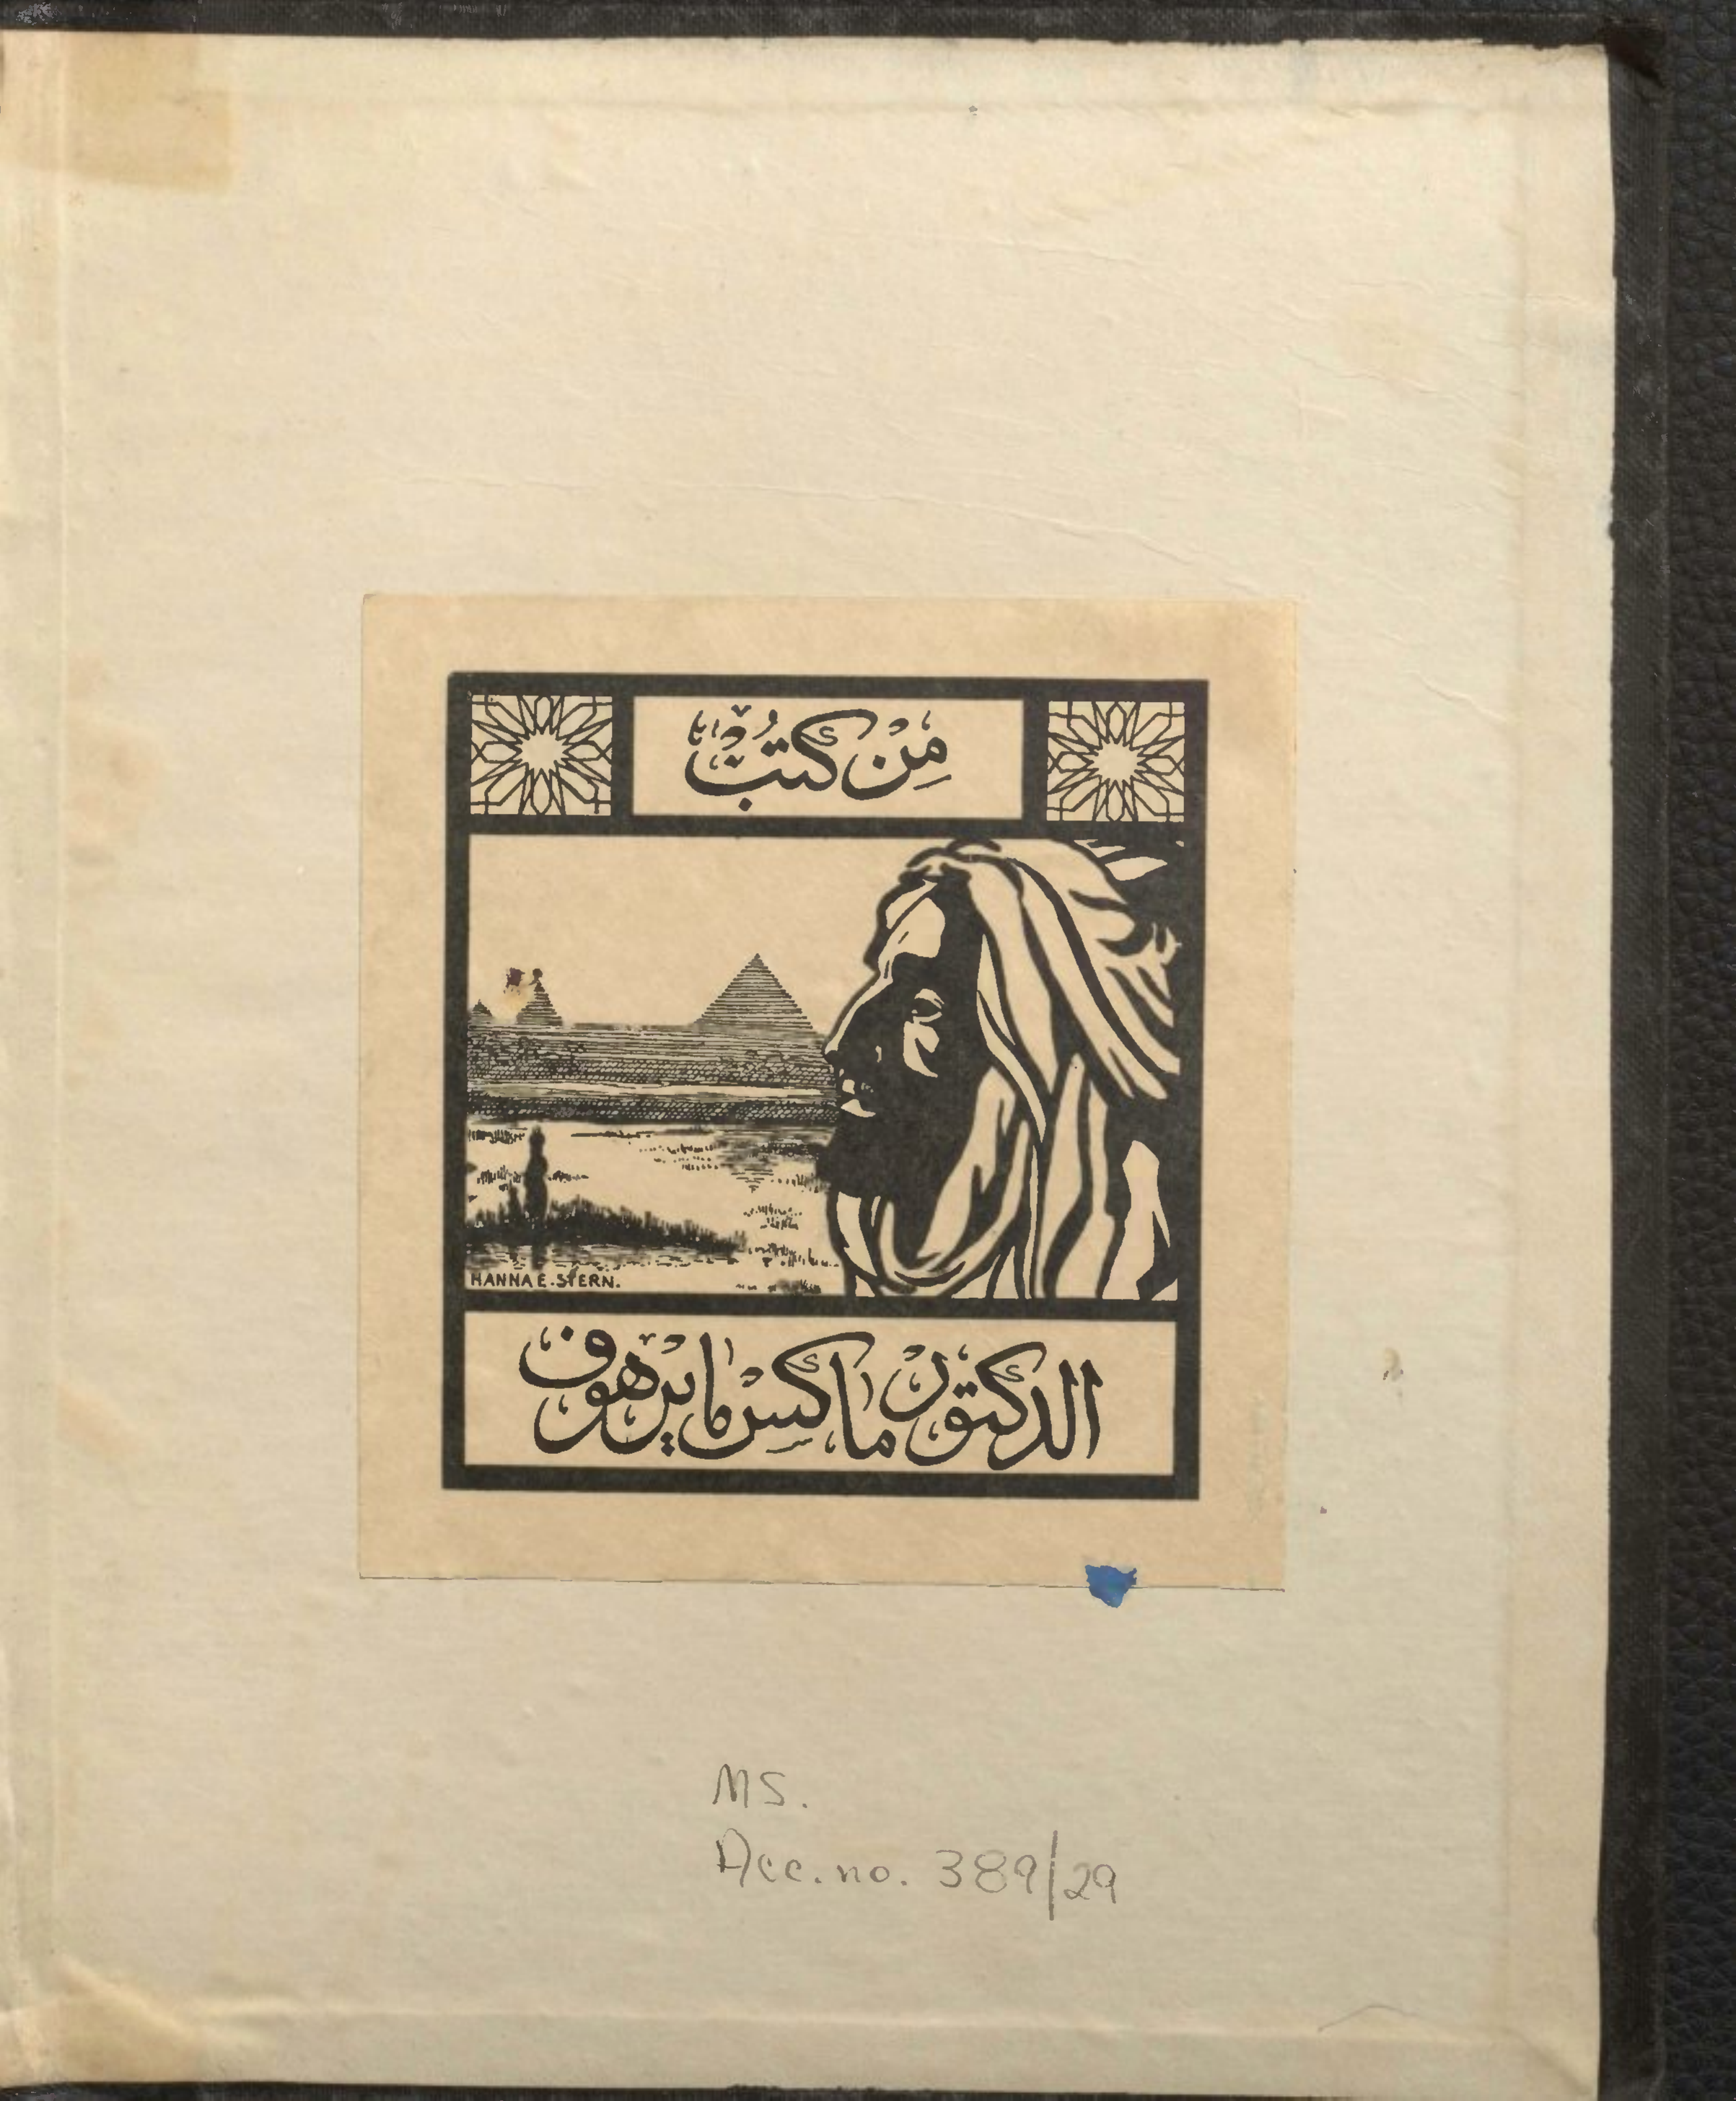 مِنْ كُتُبْ
HANNA E. STERN.
الدكتورْ ماكسْ مايرْهوف
MS.
Acc. no. 389/29